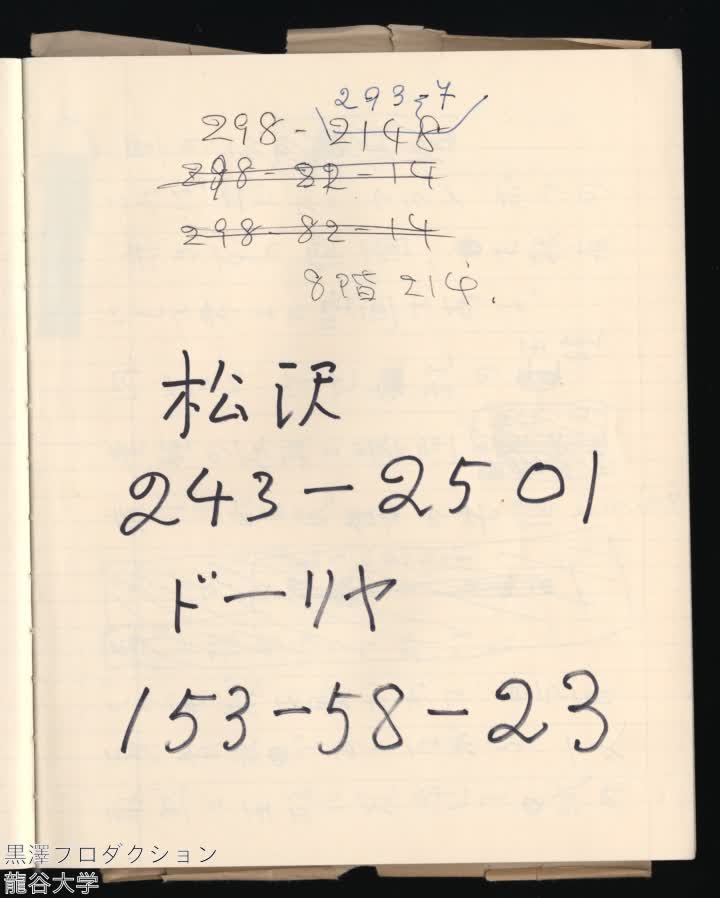 293-7
298-2148
298-82-14
298-82-14
8階 214.
松沢
243-2501
ドーリヤ
153-58-23
黒澤プロダクション
龍谷大学